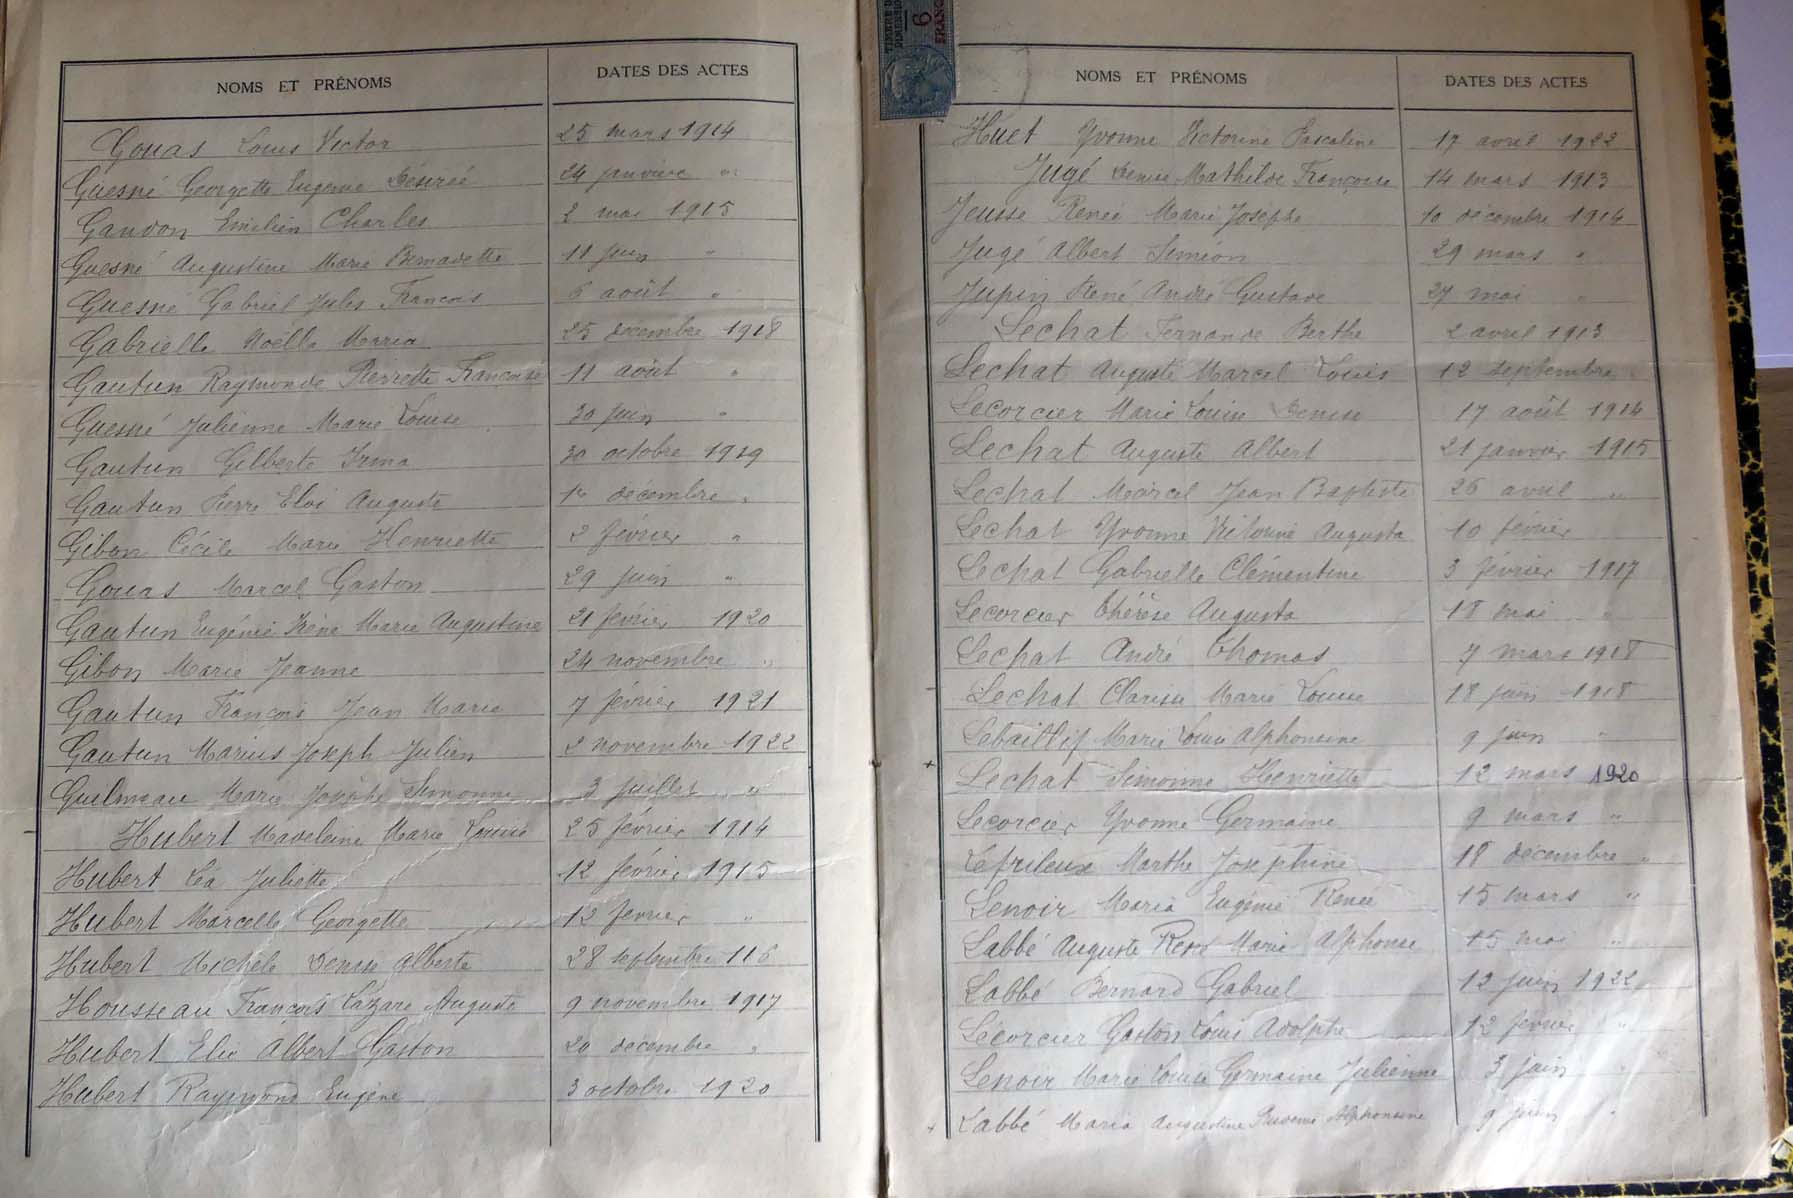 NOMS ET PRÉNOMS DATES DES ACTES
Gouas Louis Victor 25 mars 1914
Guesné Georgette Eugénie Désirée 24 janvier "
Gandon Emilien Charles 2 mai 1915
Guesné Augustine Marie Bernadette 11 juin "
Guesné Gabriel Jules François 6 août "
Gabrielle Noëlle Maria 25 décembre 1918
Gautun Raymonde Pierrette Françoise 11 août "
Guesné Julienne Marie Louise 30 juin "
Gautun Gilberte Irma 30 octobre 1919
Gautun Pierre Eloi Auguste décembre "
Gibon Cécile Marie Henriette 2 février "
Gouas Marcel Gaston 29 juin "
Gautun Eugénie Irène Marie Augustine 21 février 1920
Gibon Marie Jeanne 24 novembre "
Gautun François Jean Marie 7 février 1921
Gautun Marius Joseph Julien 2 novembre 1922
Guilmeau Marie Josèphe Simonne 3 juillet "
Hubert Madeleine Marie Louise 25 février 1914
Hubert Léa Juliette 12 février 1915
Hubert Marcelle Georgette 12 février "
Hubert Michèle Denise Alberte 28 septembre 116
Housseau François Lazare Auguste 9 novembre 1917
Hubert Elie Albert Gaston 20 décembre "
Hubert Raymond Eugène 3 octobre 1920
TIMBRE DE DIMENSION
6 FRANCS
NOMS ET PRÉNOMS DATES DES ACTES
Huet Yvonne Victorine Pascaline 17 avril 1922
Jugé Denise Mathilde Françoise 14 mars 1913
Jeusse Renée Marie Josèphe 10 décembre 1914
Jugé Albert Siméon 29 mars "
Jupin René André Gustave 27 mai "
Lechat Fernande Berthe 2 avril 1913
Lechat Auguste Marcel Louis 12 septembre "
Lecorcier Marie Louise Denise 17 août 1914
Lechat Auguste Albert 21 janvier 1915
Lechat Marcel Jean Baptiste 26 avril "
Lechat Yvonne Augusta 10 février
Lechat Gabrielle Clémentine 3 février 1917
Lecorcier Thérèse Augusta 18 mai "
Lechat André Thomas 7 mars 1918
Lechat Clarisse Marie Louise 18 juin 1918
Lebaillif Marie Louise Alphonsine 9 juin "
Lechat Simonne Henriette 12 mars 1920
Lecorcier Yvonne Germaine 9 mars "
Lefrileux Marthe Joséphine 18 décembre "
Lenoir Maria Eugénie Renée 15 mars "
Labbé Auguste René Marie Alphonse 15 mai "
Labbé Bernard Gabriel 12 juin 1922
Lecorcier Gaston Louis Adolphe 12 février "
Lenoir Marie Louise Germaine Julienne 3 juin "
Labbé Maria Augustine Alphonsine 9 juin "